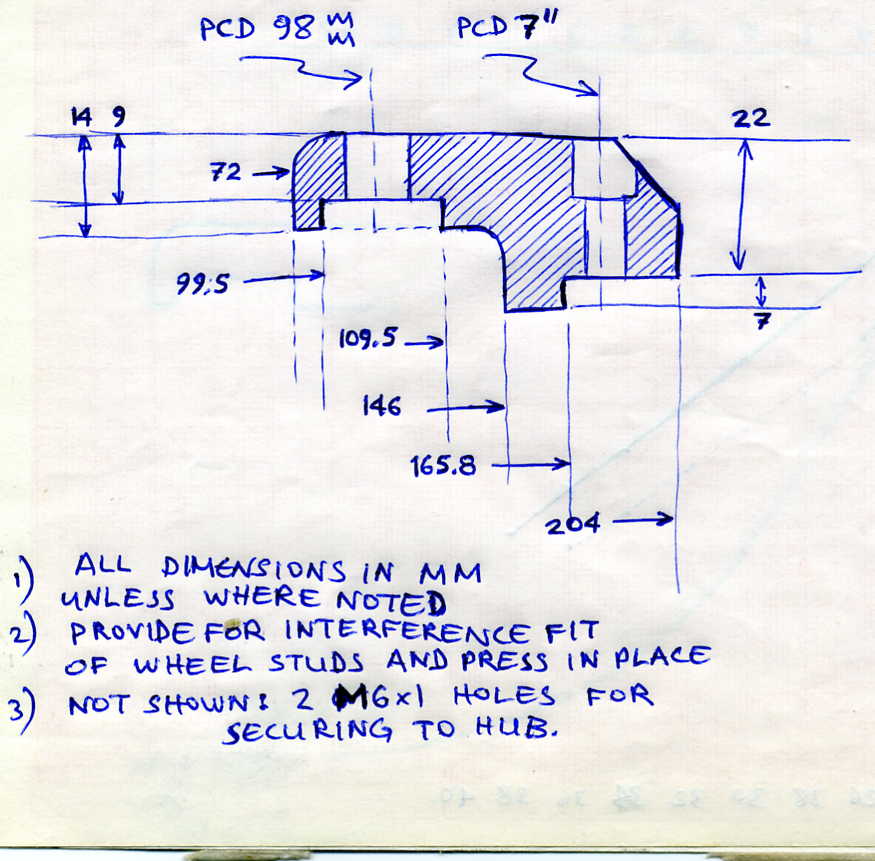 PCD 98 mm
PCD 7"
14 9
22
72
99.5
7
109.5
146
165.8
204
1) ALL DIMENSIONS IN MM
UNLESS WHERE NOTED
2) PROVIDE FOR INTERFERENCE FIT
OF WHEEL STUDS AND PRESS IN PLACE
3) NOT SHOWN: 2 M6x1 HOLES FOR
SECURING TO HUB.